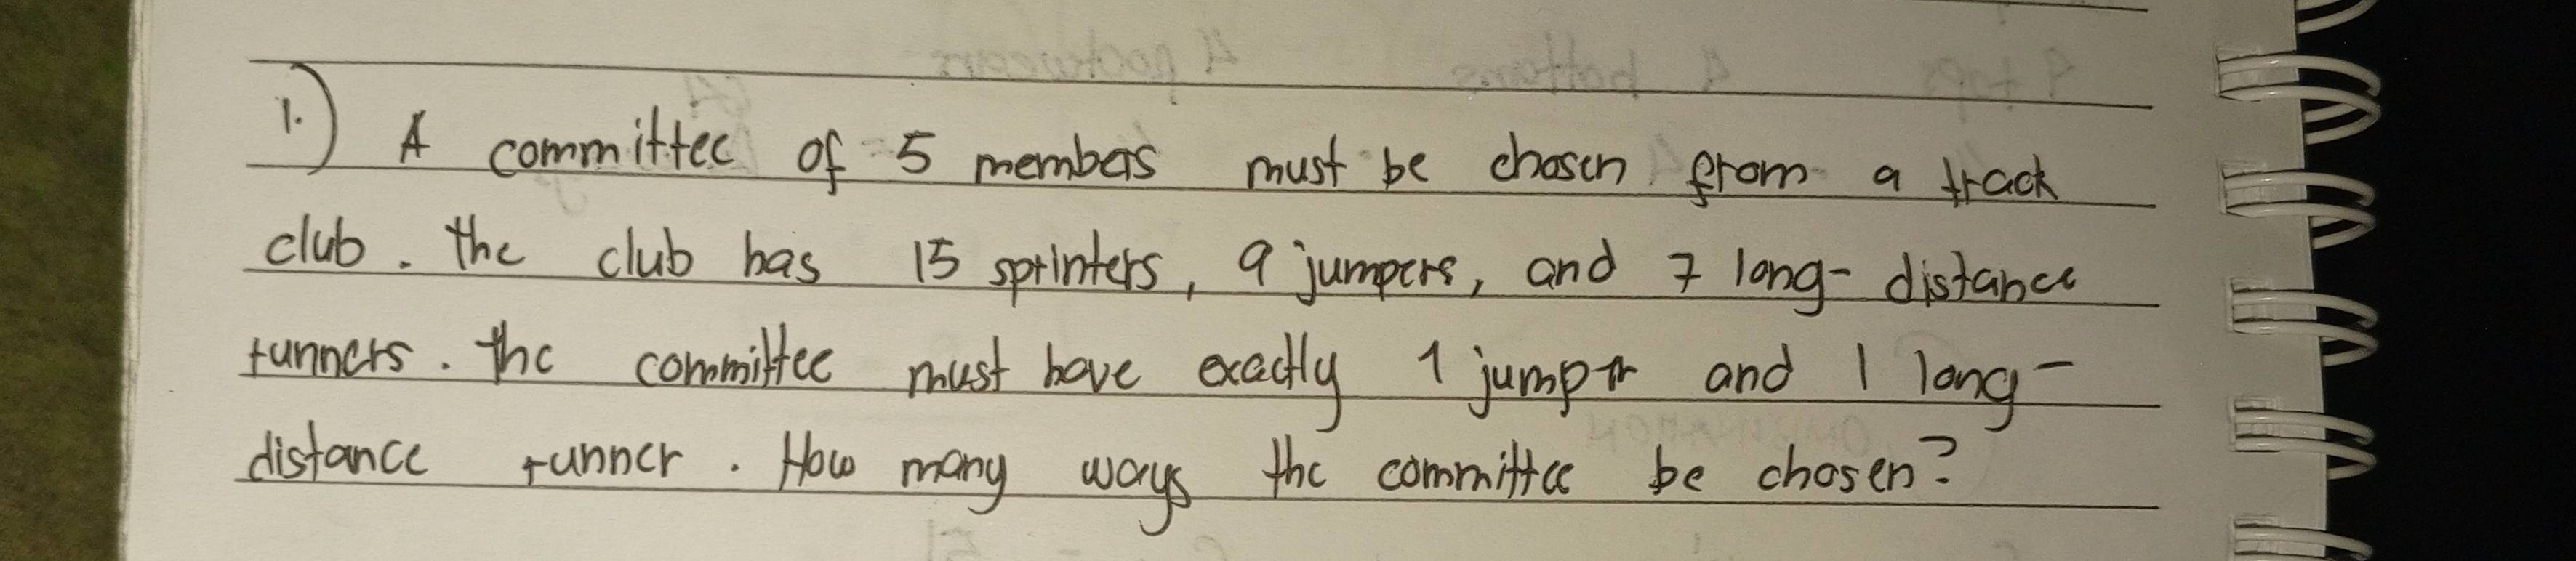 1.) A committee of 5 members must be chosen from a track
club. the club has 15 sprinters, 9 jumpers, and 7 long-distance
runners. the committee must have exactly 1 jumper and 1 long-
distance runner. How many ways the committee be chosen?